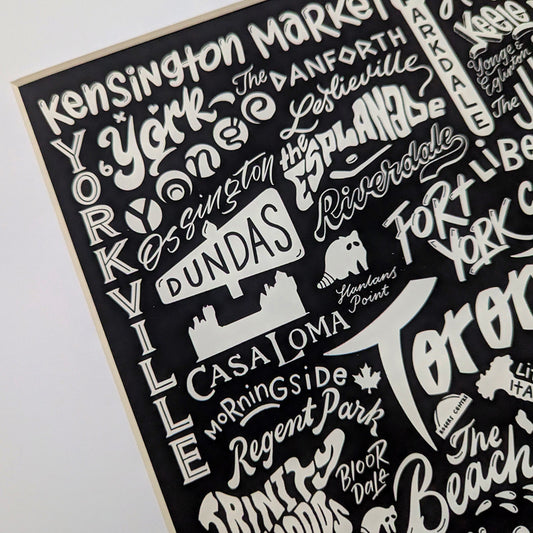 KENSINGTON MARKET
YORKVILLE
York
Yonge
The DANFORTH
Leslieville
PARKDALE
Keele
Yonge &
Eglinton
The
the
ESPLANADE
Ossington
Riverdale
DUNDAS
FORT
YORK
LIBE
Hanlans
Point
CASA LOMA
Toron
MORNINGSIDE
Regent Park
ROGERS CENTRE
The
Beach
BLOOR
DALE
TRINITY
WOODS